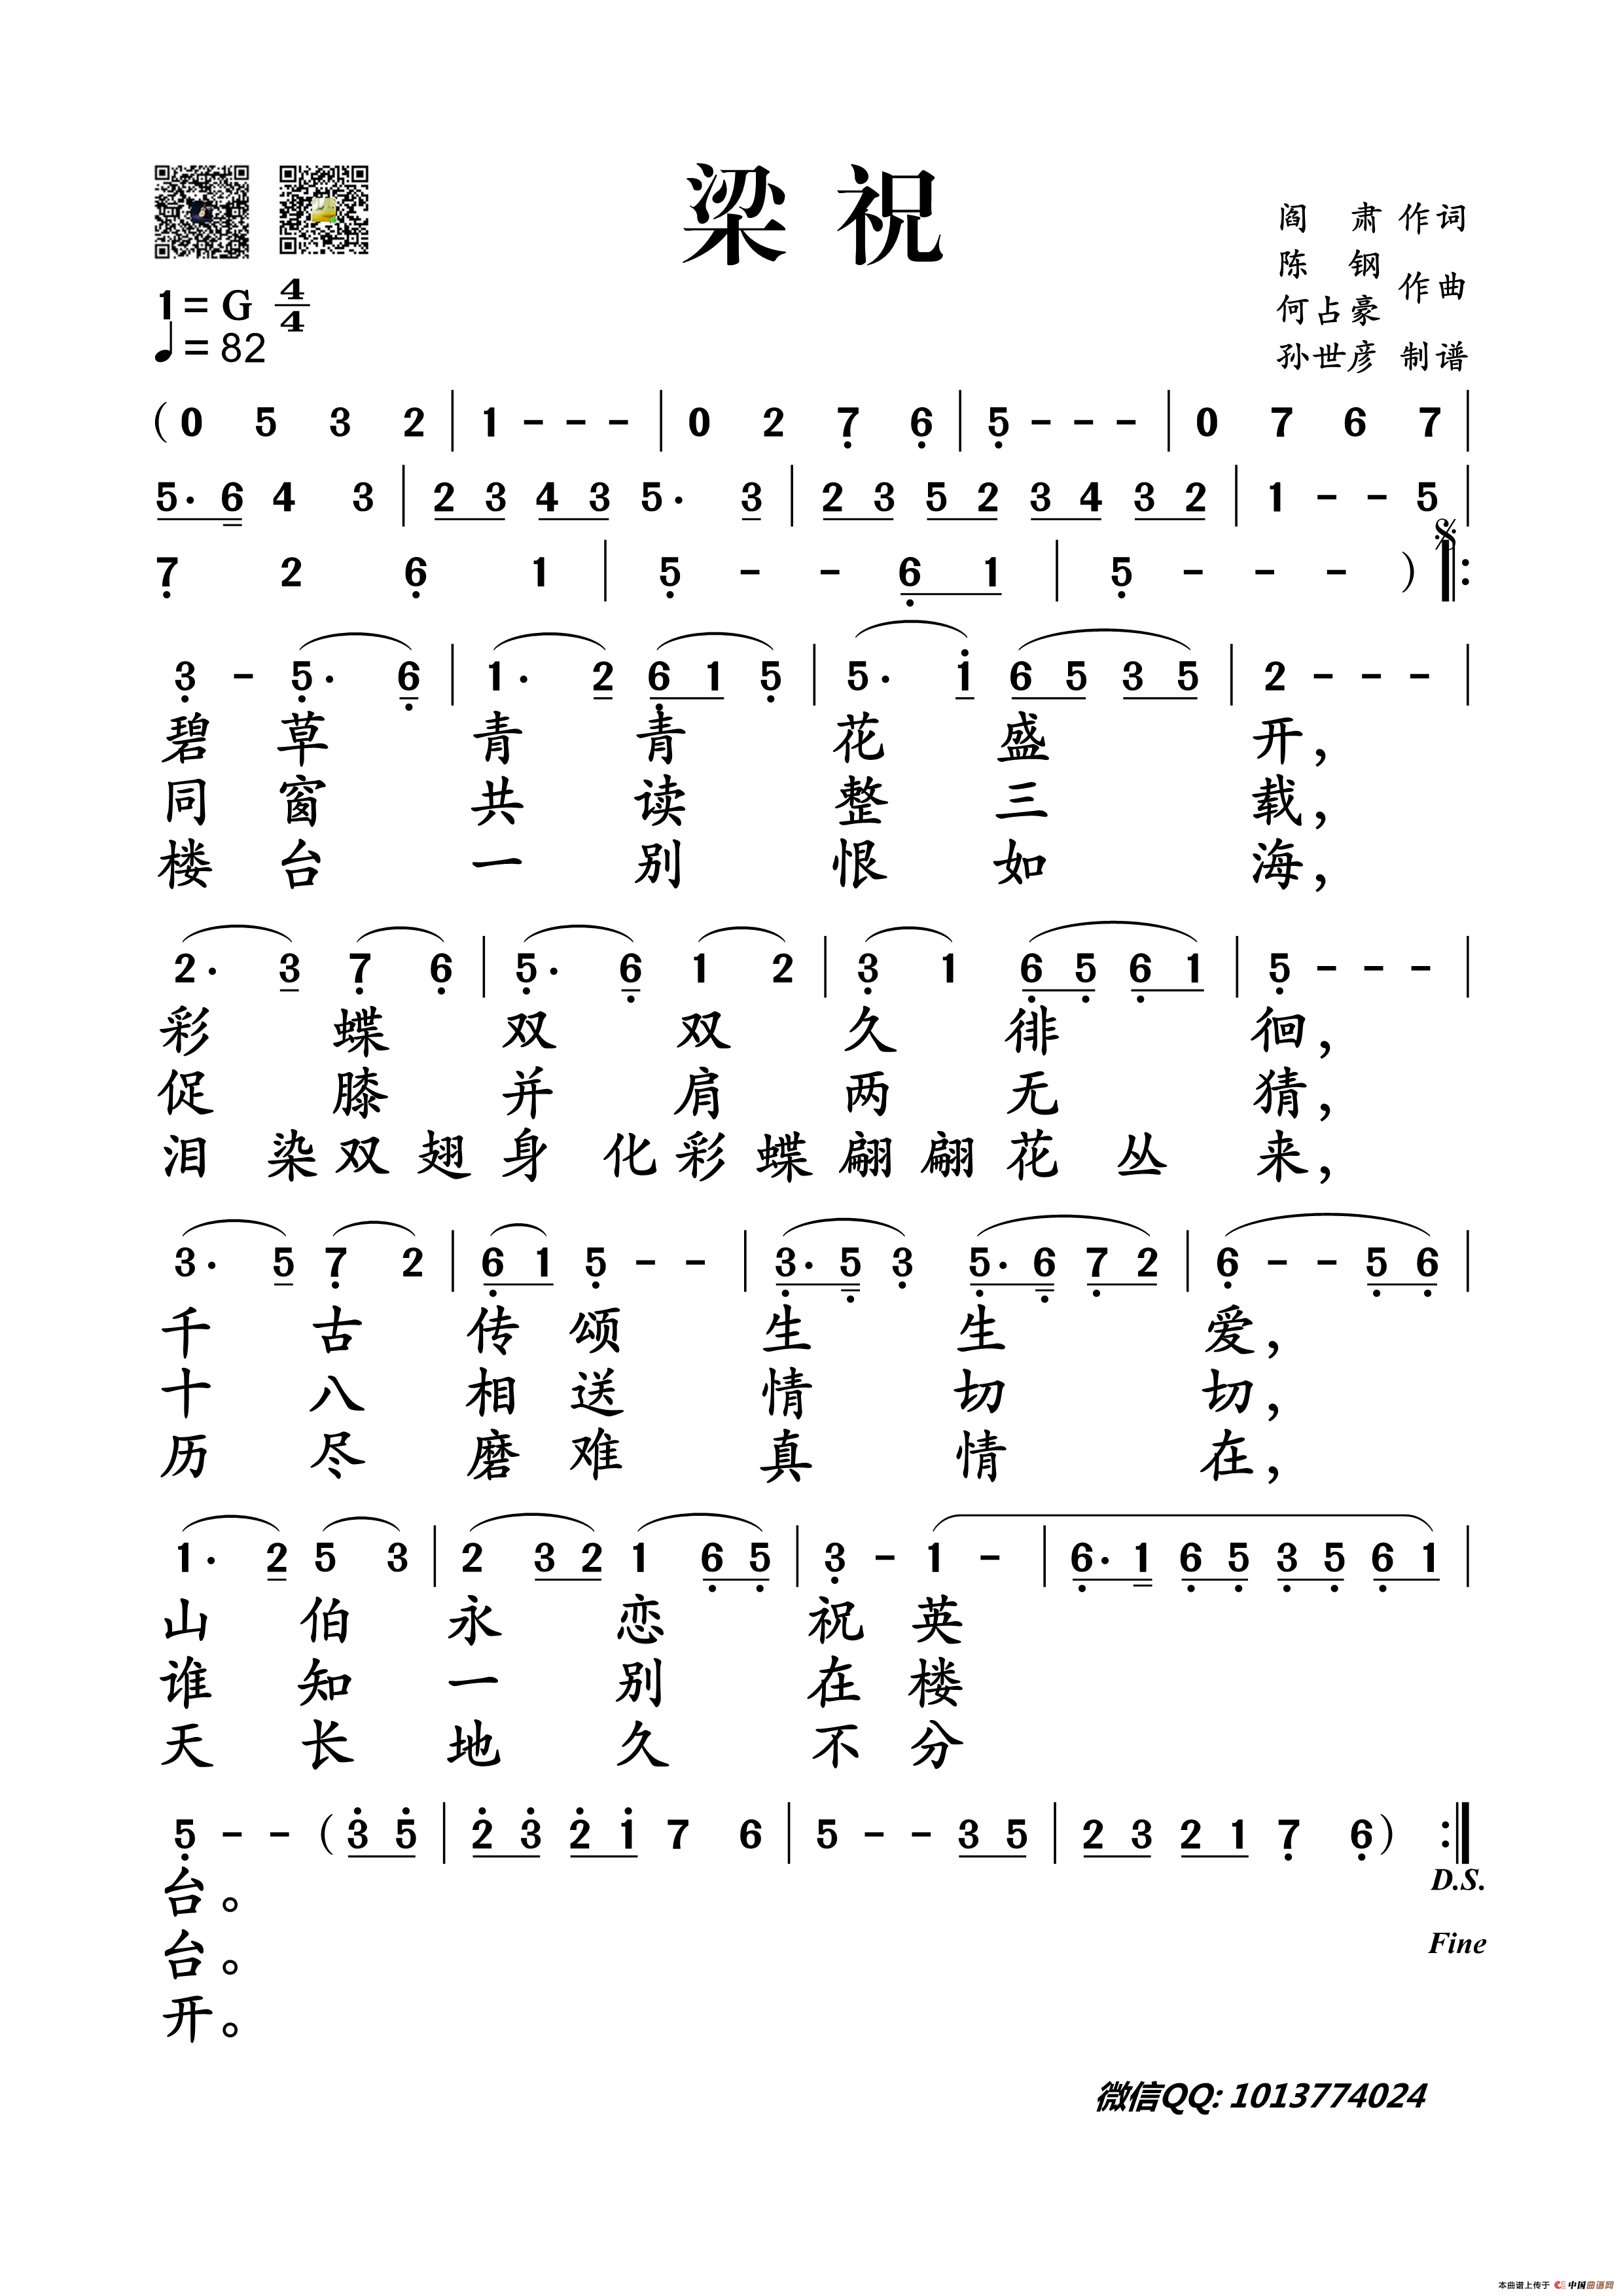 梁祝
阎 肃 作词
陈 钢
何占豪 作曲
孙世彦 制谱
1= G 4/4
♩= 82
( 0 5 3 2 | 1 - - - | 0 2 7̣ 6̣ | 5̣ - - - | 0 7 6 7 |
5. 6 4 3 | 2 3 4 3 5. 3 | 2 3 5 2 3 4 3 2 | 1 - - 5 |
7̣ 2 6̣ 1 | 5̣ - - 6̣ 1 | 5̣ - - - ) 𝄋 ‖:
3̣ - 5̣. 6̣ | 1. 2 6̣ 1 5̣ | 5. 1̇ 6 5 3 5 | 2 - - - |
碧 草 青 青 花 盛 开，
同 窗 共 读 整 三 载，
楼 台 一 别 恨 如 海，
2. 3 7̣ 6̣ | 5̣. 6̣ 1 2 | 3̣ 1 6̣ 5̣ 6̣ 1 | 5̣ - - - |
彩 蝶 双 双 久 徘 徊，
促 膝 并 肩 两 无 猜，
泪 染 双 翅 身 化 彩 蝶 翩 翩 花 丛 来，
3. 5 7̣ 2 | 6̣ 1 5̣ - - | 3̣. 5̣ 3̣ 5̣. 6̣ 7̣ 2 | 6̣ - - 5̣ 6̣ |
千 古 传 颂 生 生 爱，
十 八 相 送 情 切 切，
历 尽 磨 难 真 情 在，
1. 2 5 3 | 2 3 2 1 6̣ 5̣ | 3̣ - 1 - | 6̣. 1 6̣ 5̣ 3̣ 5̣ 6̣ 1 |
山 伯 永 恋 祝 英
谁 知 一 别 在 楼
天 长 地 久 不 分
5̣ - - ( 3̇ 5̇ | 2̇ 3̇ 2̇ 1̇ 7 6 | 5 - - 3 5 | 2 3 2 1 7̣ 6̣ ) :‖
台。
D.S.
台。
Fine
开。
微信QQ: 1013774024
本曲谱上传于 中国曲谱网